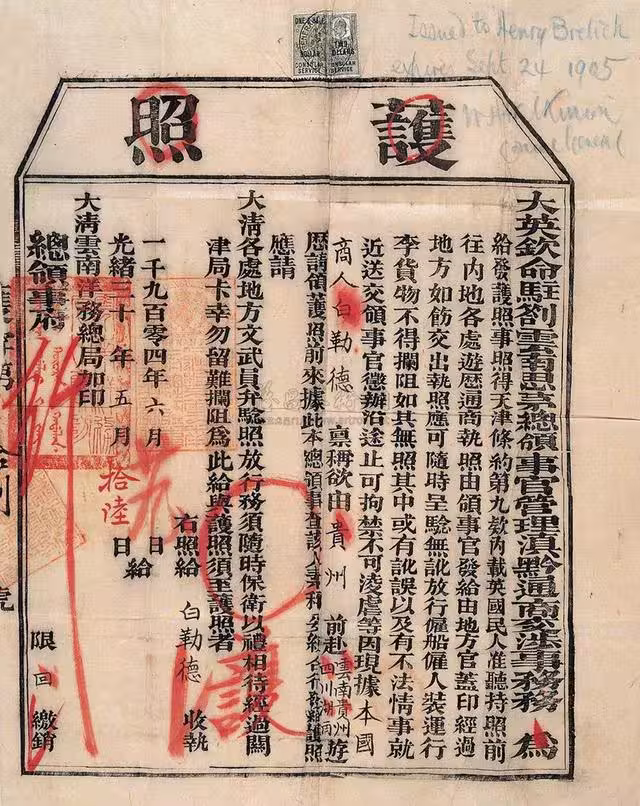 ONE DOLLAR
CONSULAR SERVICE
TWO DOLLARS
CONSULAR SERVICE
Issued to Henry Brelich
expires Sept 24 1905
Consul General
護照
大英欽命駐劄雲南思茅總領事官管理滇黔通商交涉事務 為
給發護照事照得天津條約第九款內載英國民人准聽持照前
往內地各處遊歷通商執照由領事官發給由地方官蓋印經過
地方如飭交出執照應可隨時呈驗無訛放行僱船僱人裝運行
李貨物不得攔阻如其無照其中或有訛誤以及有不法情事就
近送交領事官懲辦沿途止可拘禁不可凌虐等因現據本國
商人白勒德 稟稱欲由貴州 前赴雲南貴州四川湖南遊
歷請領護照前來據此本總領事查該人 護照
應請
大清各處地方文武員弁驗照放行務須隨時保衛以禮相待經過關
津局卡幸勿留難攔阻為此給與護照須至護照者
右照給 白勒德 收執
一千九百零四年六月 日給
光緒三十年五月拾陸日
大清雲南洋務總局加印
總領事府
限 回 繳銷
護
號